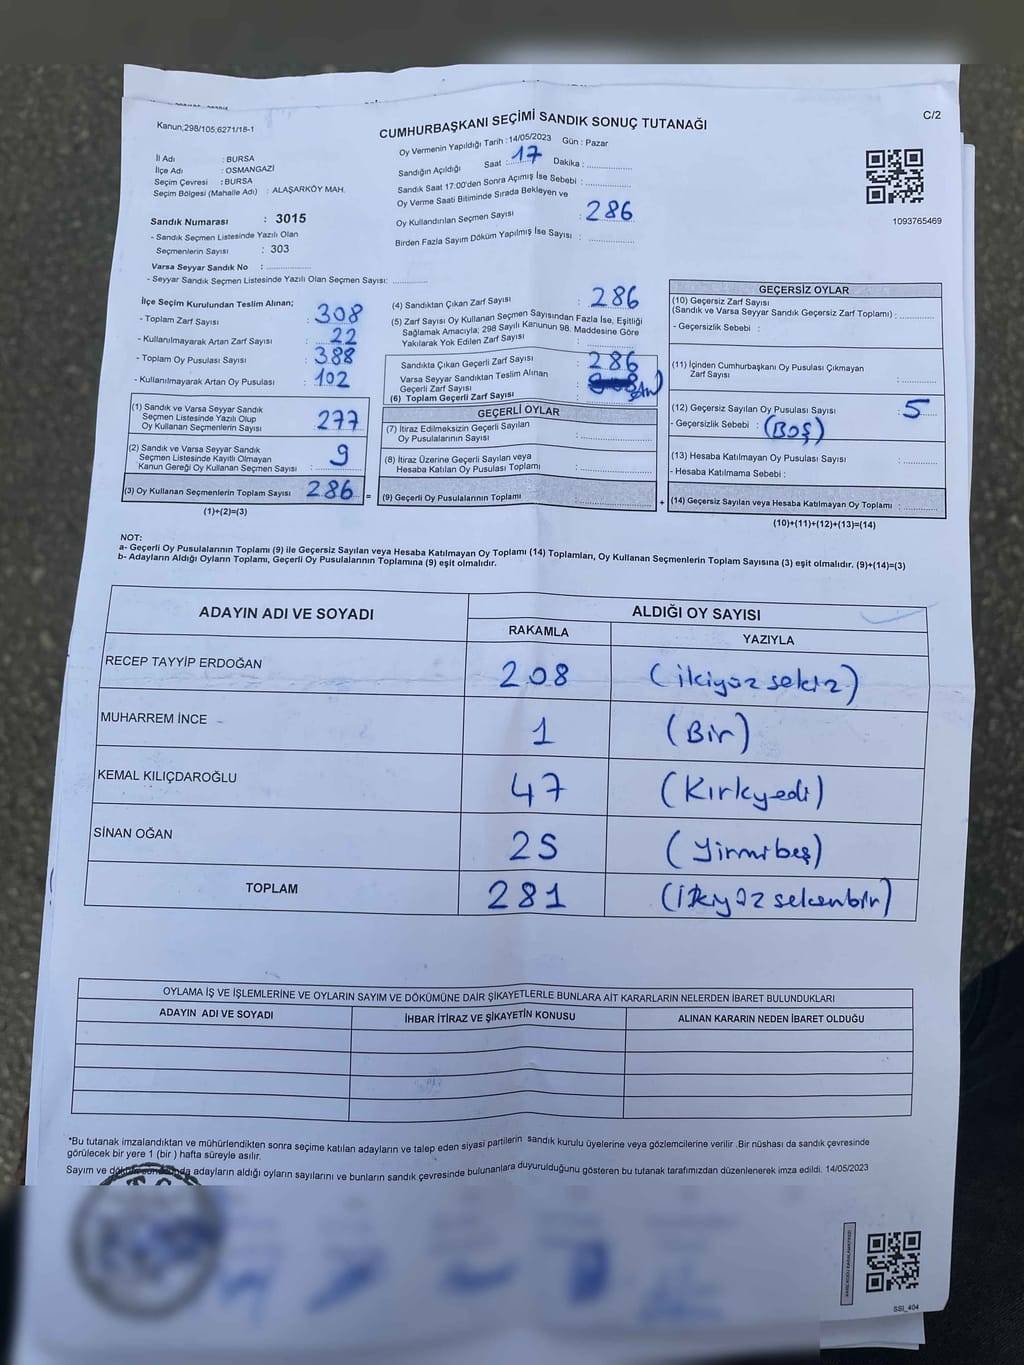 Kanun;298/105;6271/18-1
CUMHURBAŞKANI SEÇİMİ SANDIK SONUÇ TUTANAĞI
C/2
İl Adı : BURSA
İlçe Adı : OSMANGAZİ
Seçim Çevresi : BURSA
Seçim Bölgesi (Mahalle Adı) : ALAŞARKÖY MAH.
Sandık Numarası : 3015
- Sandık Seçmen Listesinde Yazılı Olan
Seçmenlerin Sayısı : 303
Varsa Seyyar Sandık No :
- Seyyar Sandık Seçmen Listesinde Yazılı Olan Seçmen Sayısı:
Oy Vermenin Yapıldığı Tarih : 14/05/2023 Gün : Pazar
Sandığın Açıldığı Saat : 17 Dakika :
Sandık Saat 17:00'den Sonra Açımış İse Sebebi :
Oy Verme Saati Bitiminde Sırada Bekleyen ve
Oy Kullandırılan Seçmen Sayısı : 286
Birden Fazla Sayım Döküm Yapılmış İse Sayısı :
1093765469
İlçe Seçim Kurulundan Teslim Alınan;
- Toplam Zarf Sayısı : 308
- Kullanılmayarak Artan Zarf Sayısı : 22
- Toplam Oy Pusulası Sayısı : 388
- Kullanılmayarak Artan Oy Pusulası : 102
(1) Sandık ve Varsa Seyyar Sandık
Seçmen Listesinde Yazılı Olup
Oy Kullanan Seçmenlerin Sayısı : 277
(2) Sandık ve Varsa Seyyar Sandık
Seçmen Listesinde Kayıtlı Olmayan
Kanun Gereği Oy Kullanan Seçmen Sayısı : 9
(3) Oy Kullanan Seçmenlerin Toplam Sayısı 286 =
(1)+(2)=(3)
(4) Sandıktan Çıkan Zarf Sayısı : 286
(5) Zarf Sayısı Oy Kullanan Seçmen Sayısından Fazla İse, Eşitliği
Sağlamak Amacıyla; 298 Sayılı Kanunun 98. Maddesine Göre
Yakılarak Yok Edilen Zarf Sayısı :
Sandıkta Çıkan Geçerli Zarf Sayısı : 286
Varsa Seyyar Sandıktan Teslim Alınan
Geçerli Zarf Sayısı :
(6) Toplam Geçerli Zarf Sayısı :
GEÇERLİ OYLAR
(7) İtiraz Edilmeksizin Geçerli Sayılan
Oy Pusulalarının Sayısı :
(8) İtiraz Üzerine Geçerli Sayılan veya
Hesaba Katılan Oy Pusulası Toplamı :
(9) Geçerli Oy Pusulalarının Toplamı : +
GEÇERSİZ OYLAR
(10) Geçersiz Zarf Sayısı
(Sandık ve Varsa Seyyar Sandık Geçersiz Zarf Toplamı) :
- Geçersizlik Sebebi :
(11) İçinden Cumhurbaşkanı Oy Pusulası Çıkmayan
Zarf Sayısı :
(12) Geçersiz Sayılan Oy Pusulası Sayısı : 5
- Geçersizlik Sebebi : (BOŞ)
(13) Hesaba Katılmayan Oy Pusulası Sayısı :
- Hesaba Katılmama Sebebi :
(14) Geçersiz Sayılan veya Hesaba Katılmayan Oy Toplamı :
(10)+(11)+(12)+(13)=(14)
NOT:
a- Geçerli Oy Pusulalarının Toplamı (9) ile Geçersiz Sayılan veya Hesaba Katılmayan Oy Toplamı (14) Toplamları, Oy Kullanan Seçmenlerin Toplam Sayısına (3) eşit olmalıdır. (9)+(14)=(3)
b- Adayların Aldığı Oyların Toplamı, Geçerli Oy Pusulalarının Toplamına (9) eşit olmalıdır.
ADAYIN ADI VE SOYADI ALDIĞI OY SAYISI
RAKAMLA YAZIYLA
RECEP TAYYİP ERDOĞAN 208 (ikiyüz sekiz)
MUHARREM İNCE 1 (Bir)
KEMAL KILIÇDAROĞLU 47 (Kırkyedi)
SİNAN OĞAN 25 (Yirmibeş)
TOPLAM 281 (İkiyüz seksenbir)
OYLAMA İŞ VE İŞLEMLERİNE VE OYLARIN SAYIM VE DÖKÜMÜNE DAİR ŞİKAYETLERLE BUNLARA AİT KARARLARIN NELERDEN İBARET BULUNDUKLARI
ADAYIN ADI VE SOYADI İHBAR İTİRAZ VE ŞİKAYETİN KONUSU ALINAN KARARIN NEDEN İBARET OLDUĞU
*Bu tutanak imzalandıktan ve mühürlendikten sonra seçime katılan adayların ve talep eden siyasi partilerin sandık kurulu üyelerine veya gözlemcilerine verilir .Bir nüshası da sandık çevresinde
görülecek bir yere 1 (bir ) hafta süreyle asılır.
Sayım ve döküm sonunda adayların aldığı oyların sayılarını ve bunların sandık çevresinde bulunanlara duyurulduğunu gösteren bu tutanak tarafımızdan düzenlenerek imza edildi. 14/05/2023
SSI_404